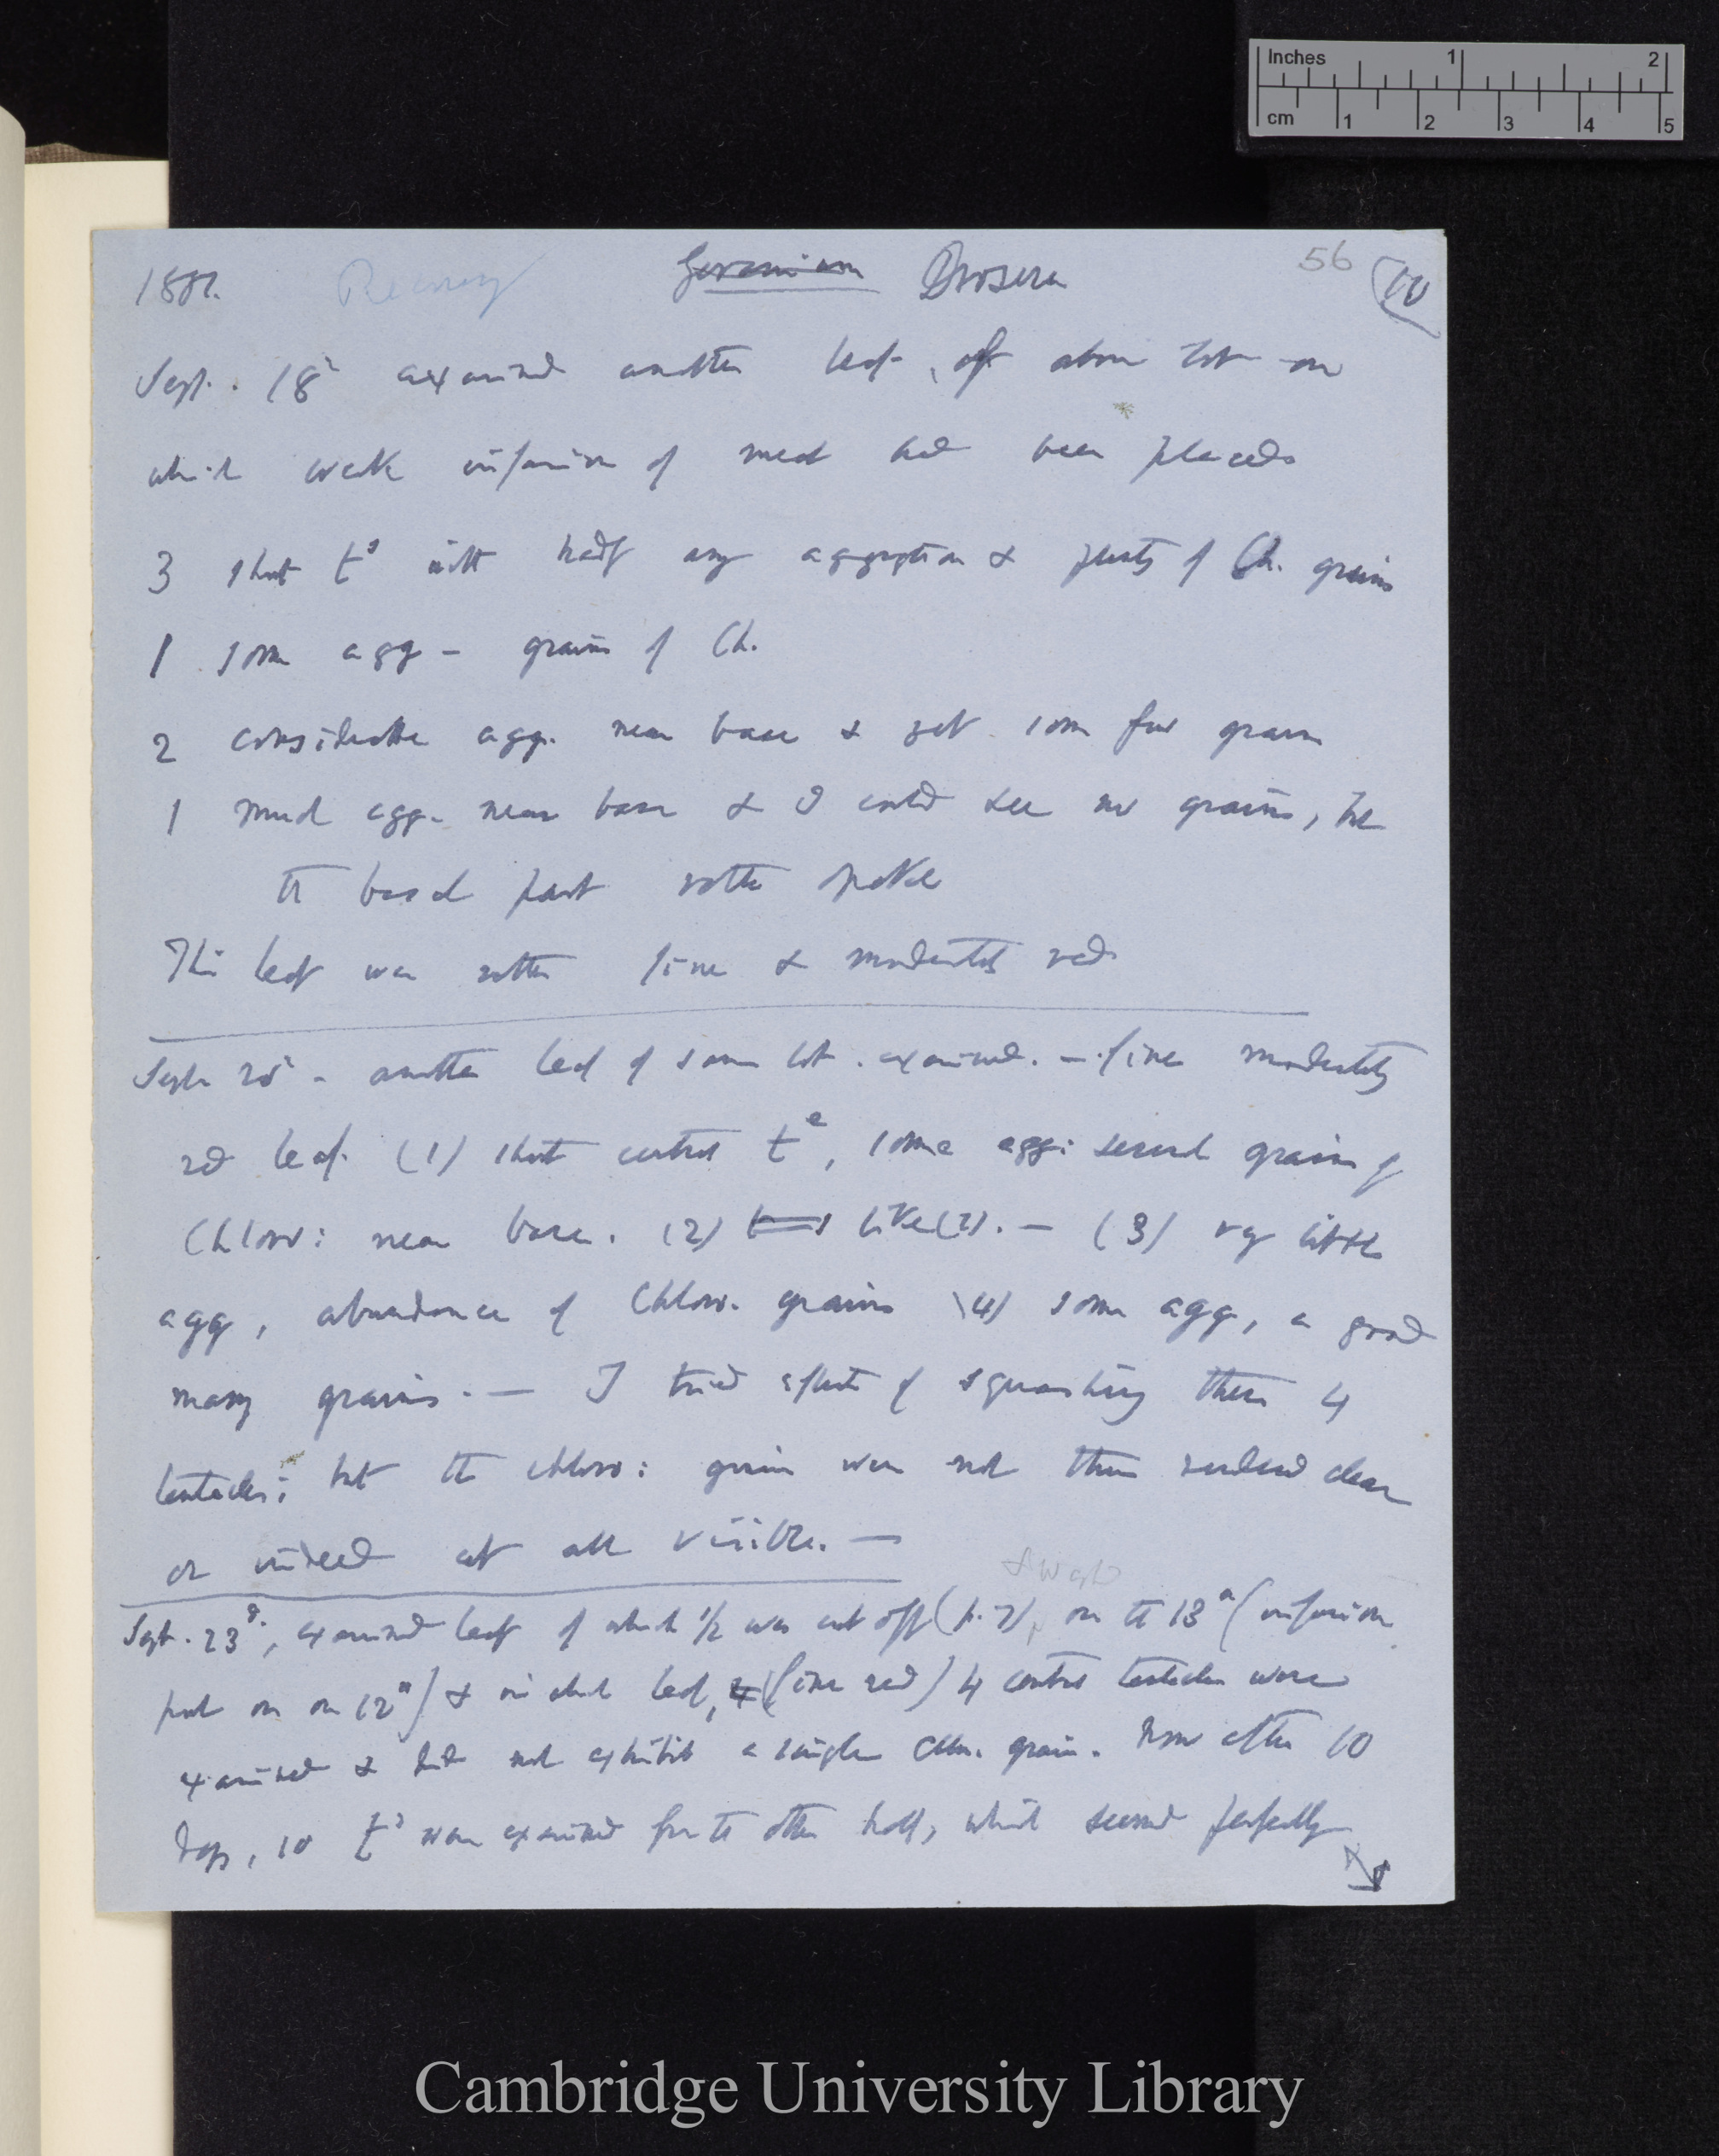 Inches 1 2
cm 1 2 3 4 5
1881. Geranium Drosera 56 (10
Sept. 18 examined another leaf, of above lot on
which weak infusion of meat had been placed
3 short ts with hardly any aggregation & plenty of Ch. grains
1 some agg – grains of Ch.
2 considerable agg. near base & yet some few grains
1 much agg. near base & I could see no grains, but
the basal part rather opake
This leaf was rather fine & moderately red
Sept 20 – another leaf of same lot examined. – fine moderately
red leaf. (1) short central te, some agg: several grains of
Chloro: near base. (2) like (1). – (3) very little
agg, abundance of Chloro. grains (4) some agg, a good
many grains. — I tried effects of squashing these 4
tentacles; but the chloro: grains were not thus rendered clear
or indeed at all visible. —
Sept. 23d., examined leaf of which 1/2 was cut off (p. 7), on the 13th (infusion
put on on 12th) & in which leaf, (fine red) 4 central tentacles were
examined & did not exhibit a single Chlo. grain. Now after 10
days, 10 ts were examined from the other half, which seemed perfectly
Cambridge University Library